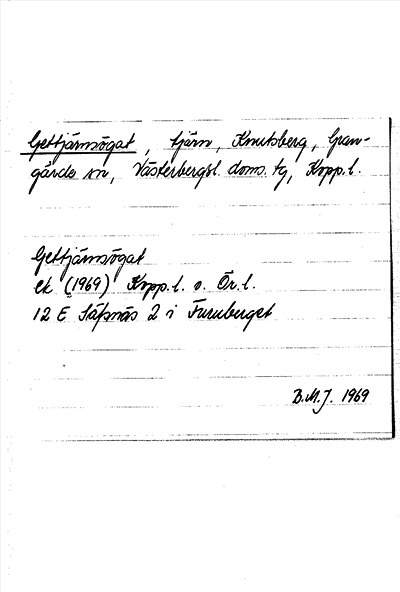 Gettjärnsögat, tjärn, Knutsberg, Gran-
gärde sn, Västerbergsl. doms. tg, Kopp.l.
Gettjärnsögat
ek (1969) Kopp.l. o. Ör.l.
12 E Säfsnäs 2 i Furuberget
B.M.J. 1969